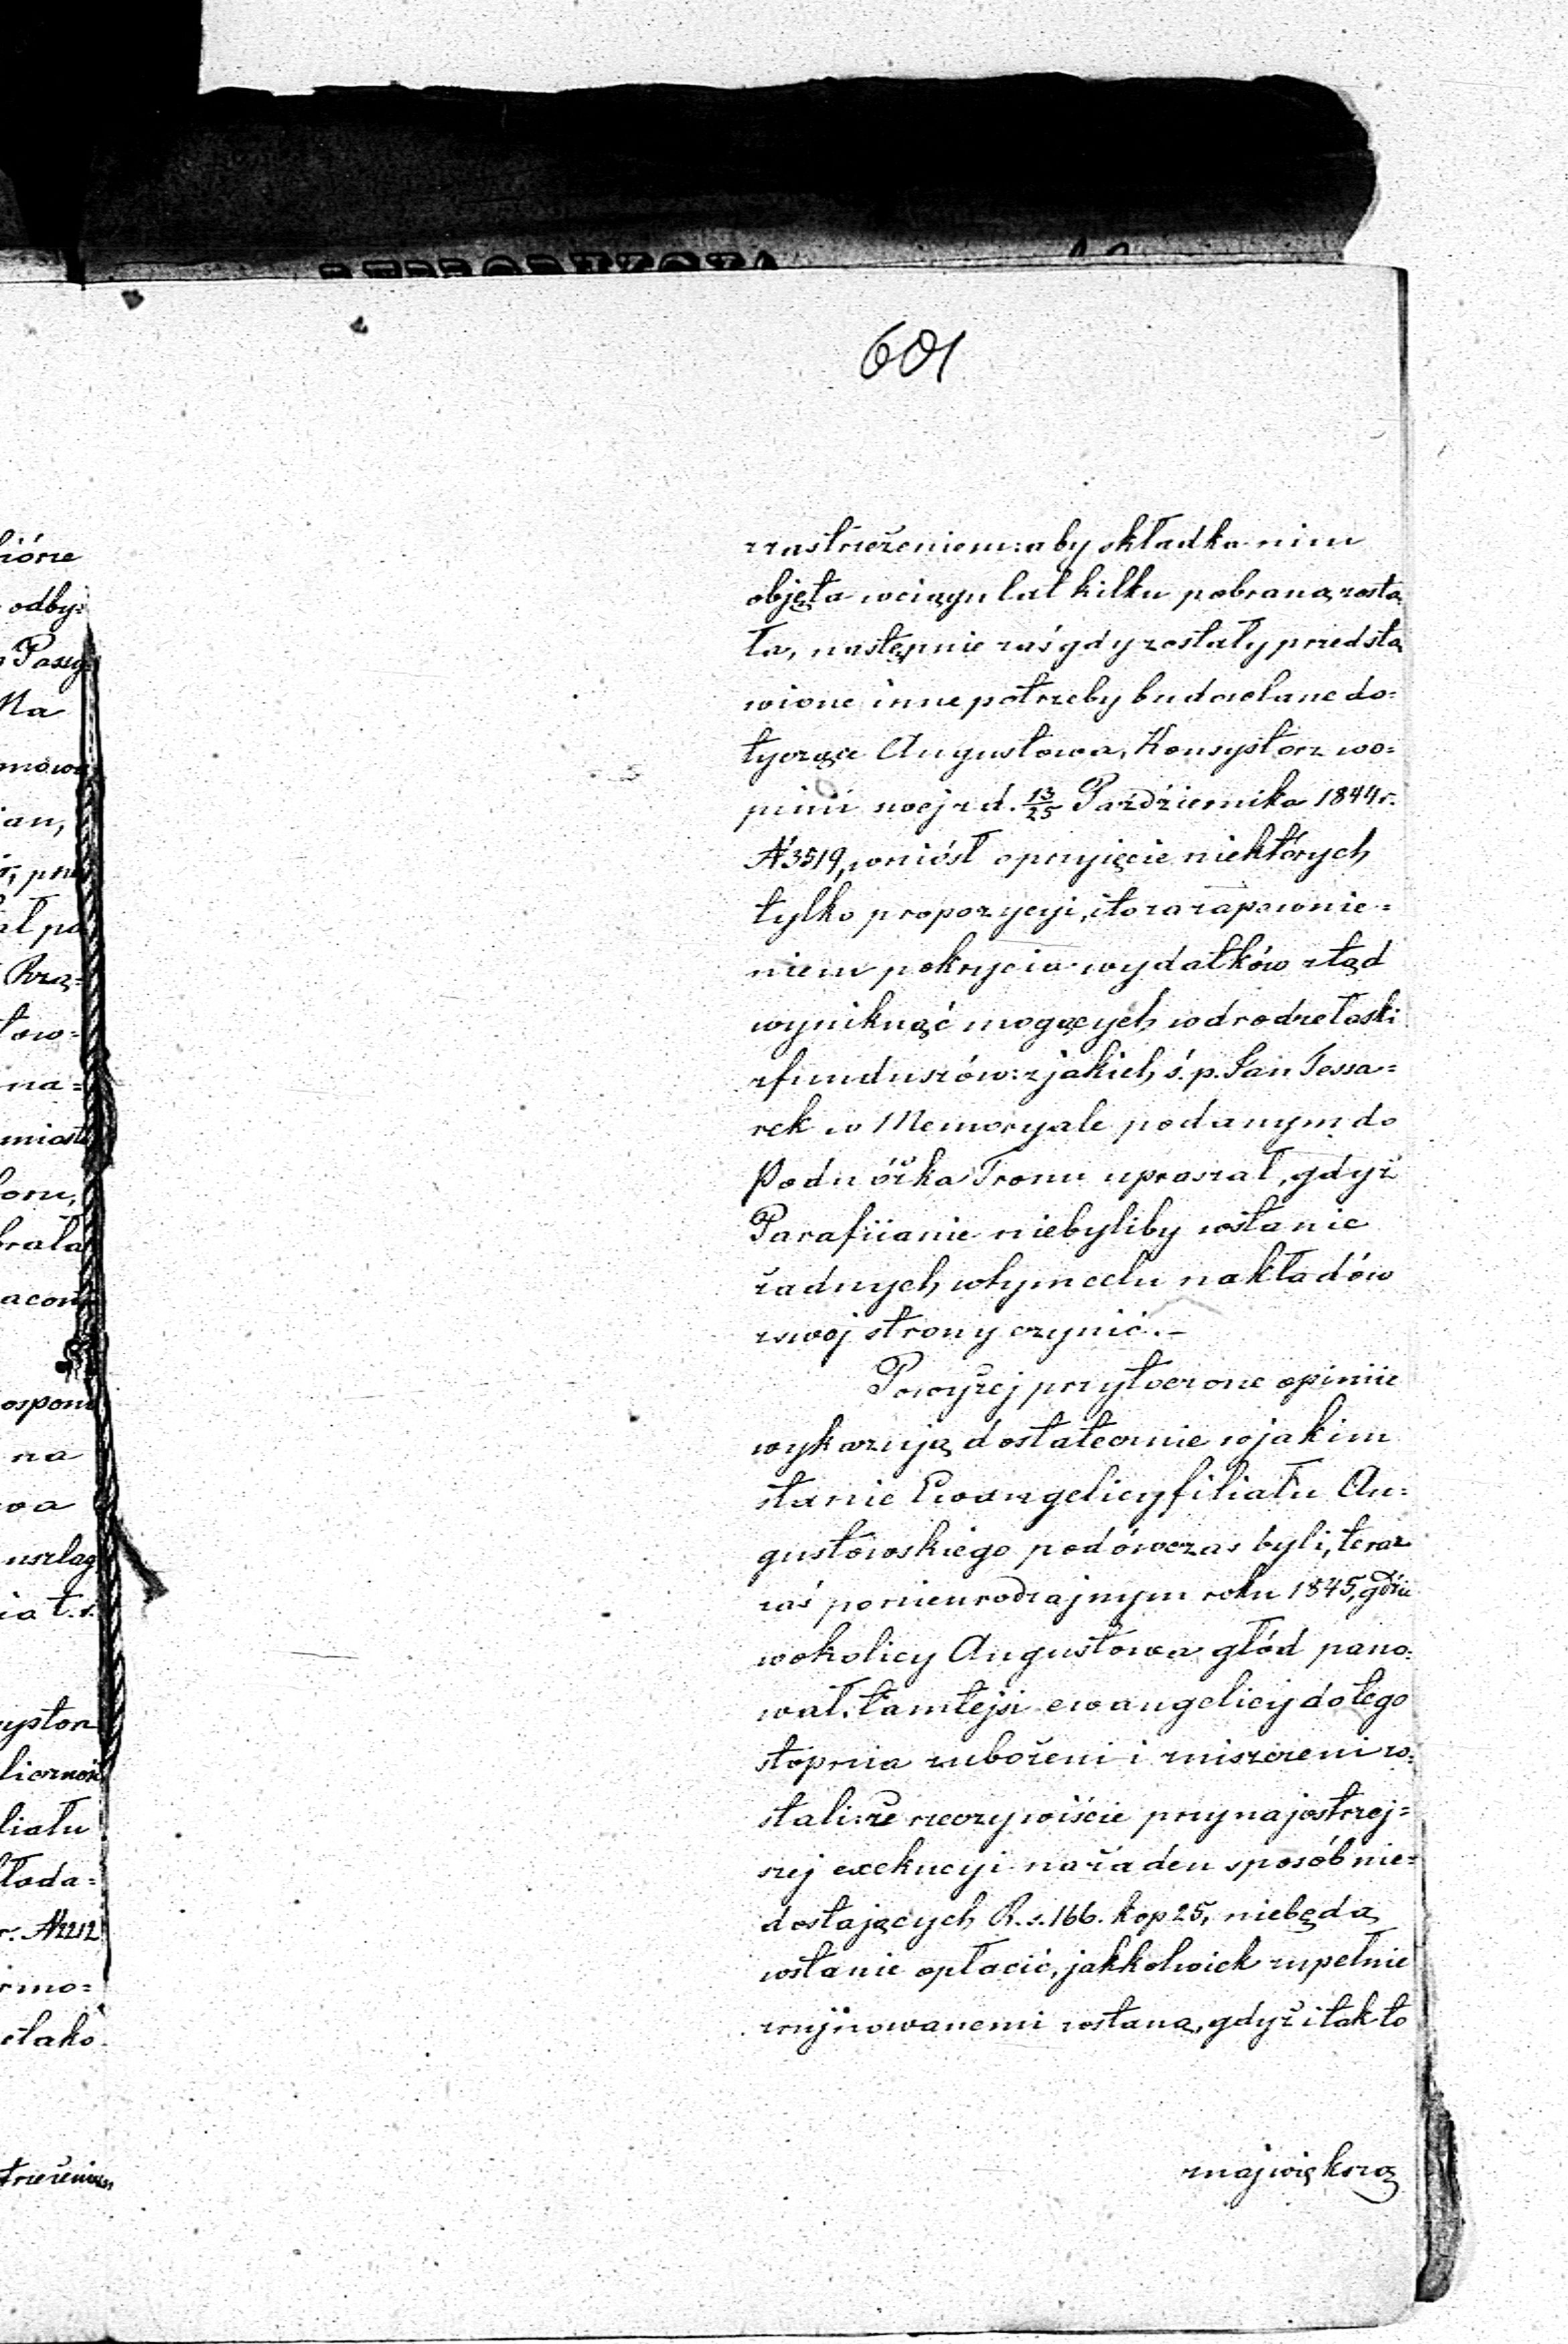 601
z zastrzeżeniem: aby składka nim
objęta w ciągu lat kilku pobraną zosta
ła, następnie zaś gdy zostały przedsta
wione inne potrzeby budowlane do=
tyczące Augustowa, Konsystorz w o=
pinii swej z d. 13/25 Października 1844 r.
№ 3519, wniósł o przyjęcie niektórych
tylko propozycyi, i to za zapewnie=
niem pokrycia wydatków ztąd
wyniknąć mogących w drodze łaski
z funduszów: z jakich ś. p. Jan Tessa=
rek w Memoryale podanym do
Podnóżka Tronu upraszał, gdyż
Parafiianie niebyliby wstanie
żadnych w tym celu nakładów
z swej strony czynić.-
Powyżej przytoczone opiniie
wykazują dostatecznie w jakim
stanie Ewangelicy filiału Au=
gustowskiego podówczas byli, teraz
zaś po nieurodzajnym roku 1845, gdzie
w okolicy Augustowa głód pano=
wał, tamtejsi ewangelicy do tego
stopnia zubożeni i zniszczeni zo=
stali: że rzeczywiście przy najostrzej=
szej exekucyi na żaden sposób nie=
dostających R. s. 166. kop 25, niebędą
wstanie opłacić, jakkolwiek zupełnie
zrujnowanemi zostaną, gdyż i tak to
największą
hiórze
odby=
Na
ian,
ał po
Rzą=
tow=
na=
miast
oru,
brała
na
wa
liału
łoda=
r. № 2212
rmo=
etako